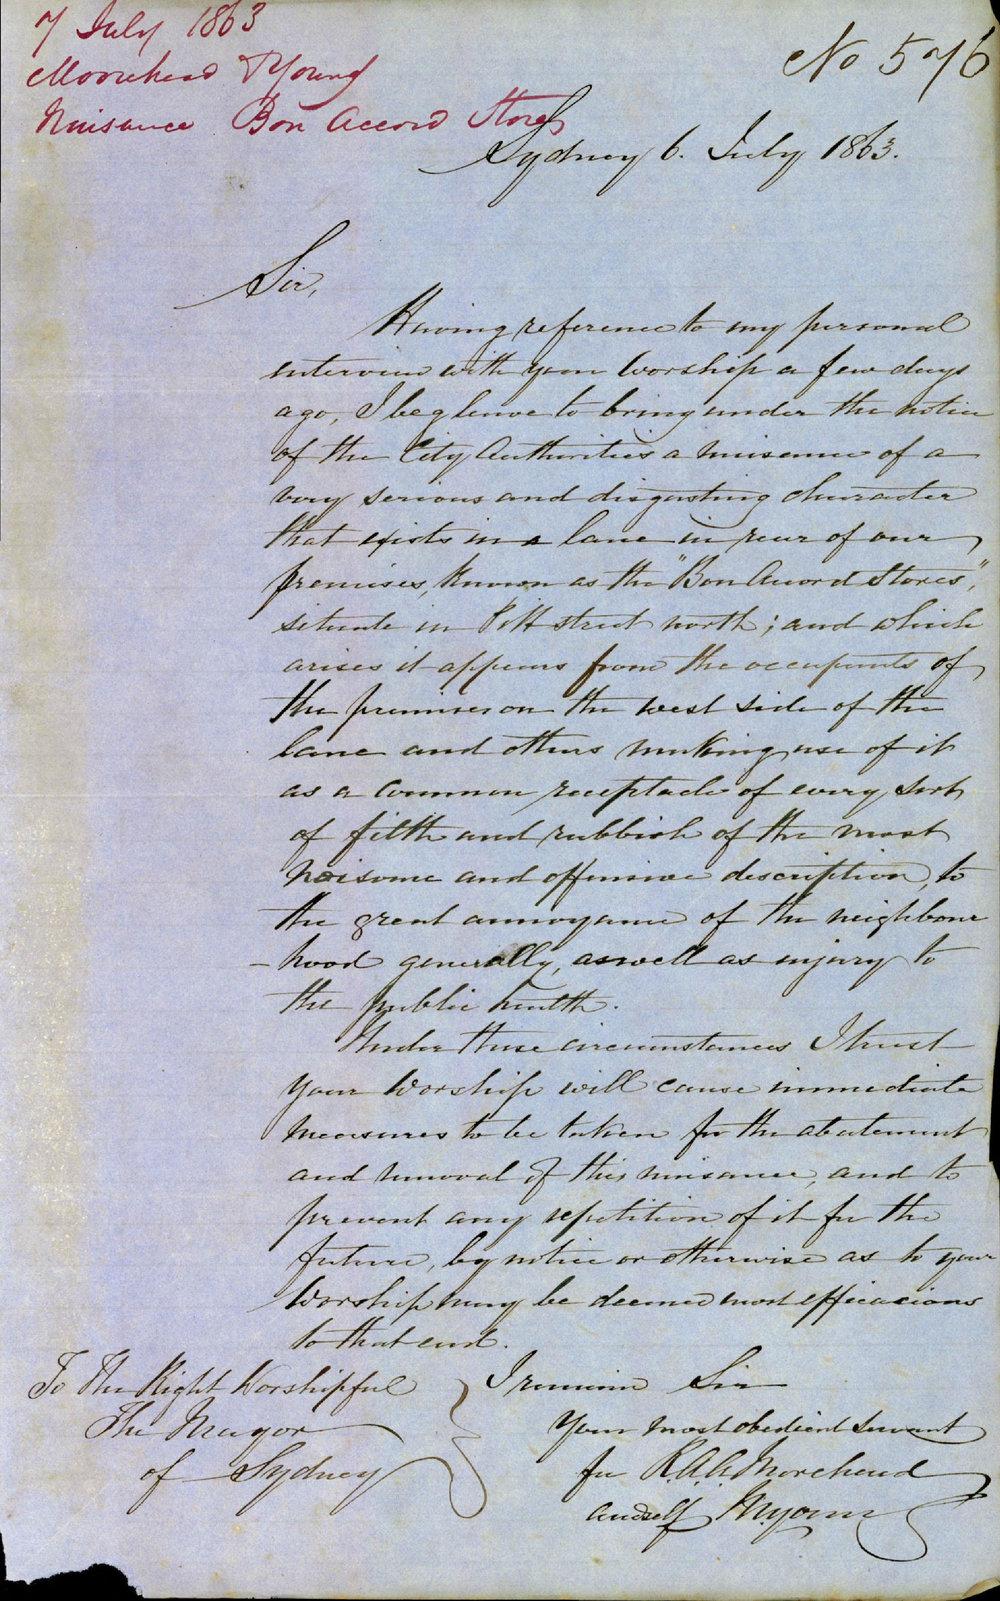 7 July 1863
Moorehead & Young
Nuisance Bon Accord Stores
No 576
Sydney 6. July 1863.
Sir,
Having reference to my personal
interview with your Worship a few days
ago, I beg leave to bring under the notice
of the City Authorities a nuisance of a
very serious and disgusting character
that exists in a lane in rear of our
premises, known as the "Bon Accord Stores",
situate in Pitt street north; and which
arises it appears from the occupants of
the premises on the west side of the
lane and others making use of it
as a common receptacle of every sort
of filth and rubbish of the most
noisome and offensive description, to
the great annoyance of the neighbour
-hood generally, as well as injury to
the public health.
Under these circumstances I trust
your Worship will cause immediate
measures to be taken for the abatement
and removal of this nuisance, and to
prevent any repetition of it for the
future, by notice or otherwise as to your
Worship may be deemed most efficacious
to that end.
I remain Sir
Your most obedient servant
for R.A.A. Morehead
and self
To The Right Worshipful
The Mayor
of Sydney